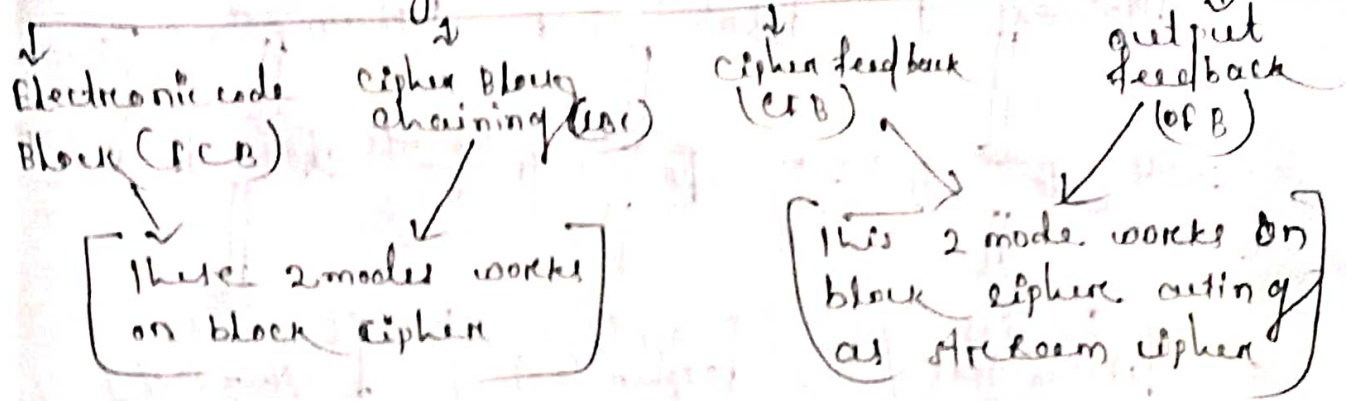 Electronic code
Block (ECB)
Cipher Block
chaining (CBC)
Cipher feedback
(CFB)
output
feedback
(OFB)
These 2 modes works
on block cipher
This 2 mode works on
block cipher acting
as stream cipher